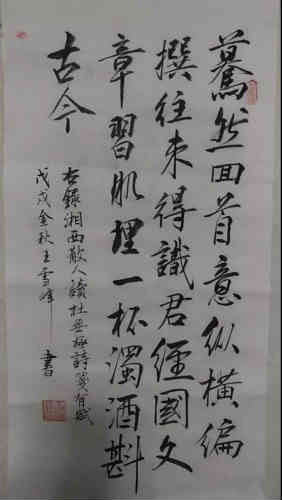 蓦然回首意纵横编
撰往来得識君經國文
章習肌理一杯濁酒斟
古今
右録湘西散人讀杜無極詩箋有感
戊戌金秋王雪峰 書